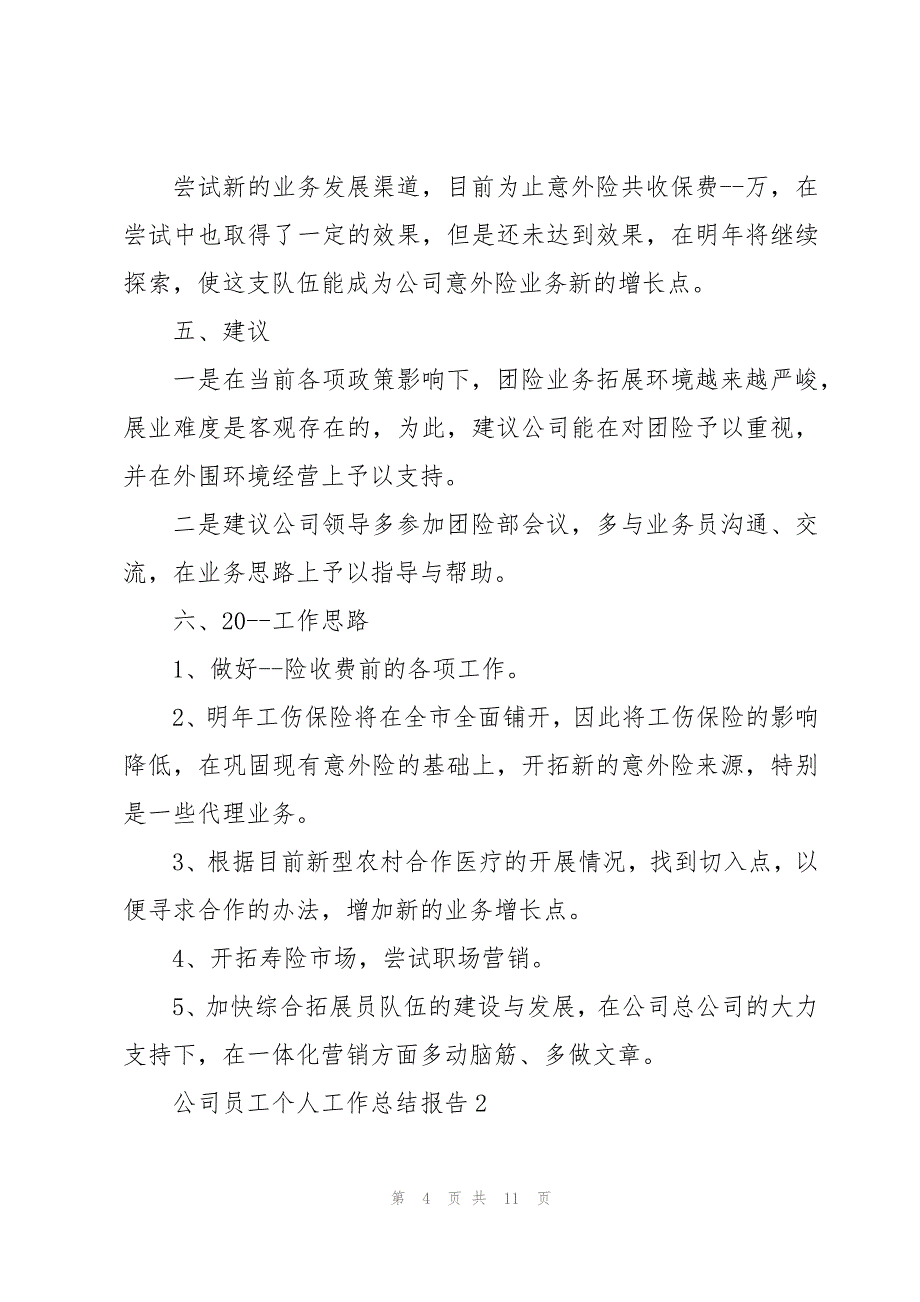 尝试新的业务发展渠道，目前为止意外险共收保费--万，在
尝试中也取得了一定的效果，但是还未达到效果，在明年将继续
探索，使这支队伍能成为公司意外险业务新的增长点。
五、建议
一是在当前各项政策影响下，团险业务拓展环境越来越严峻，
展业难度是客观存在的，为此，建议公司能在对团险予以重视，
并在外围环境经营上予以支持。
二是建议公司领导多参加团险部会议，多与业务员沟通、交
流，在业务思路上予以指导与帮助。
六、20--工作思路
1、做好--险收费前的各项工作。
2、明年工伤保险将在全市全面铺开，因此将工伤保险的影响
降低，在巩固现有意外险的基础上，开拓新的意外险来源，特别
是一些代理业务。
3、根据目前新型农村合作医疗的开展情况，找到切入点，以
便寻求合作的办法，增加新的业务增长点。
4、开拓寿险市场，尝试职场营销。
5、加快综合拓展员队伍的建设与发展，在公司总公司的大力
支持下，在一体化营销方面多动脑筋、多做文章。
公司员工个人工作总结报告2
第 4 页 共 11 页